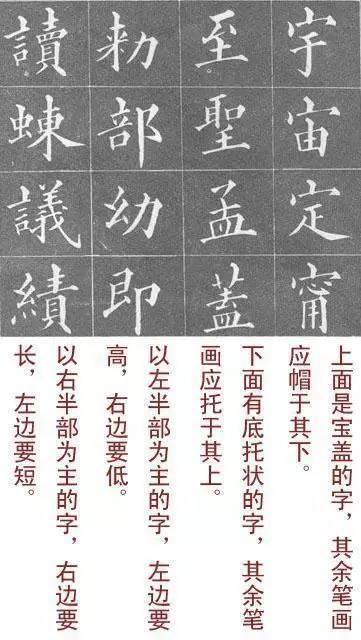 宇宙定甯
至聖孟蓋
勅部幼即
讀蝀議績
上面是宝盖的字，其余笔画
应帽于其下。
下面有底托状的字，其余笔
画应托于其上。
以左半部为主的字，左边要
高，右边要低。
以右半部为主的字，右边要
长，左边要短。